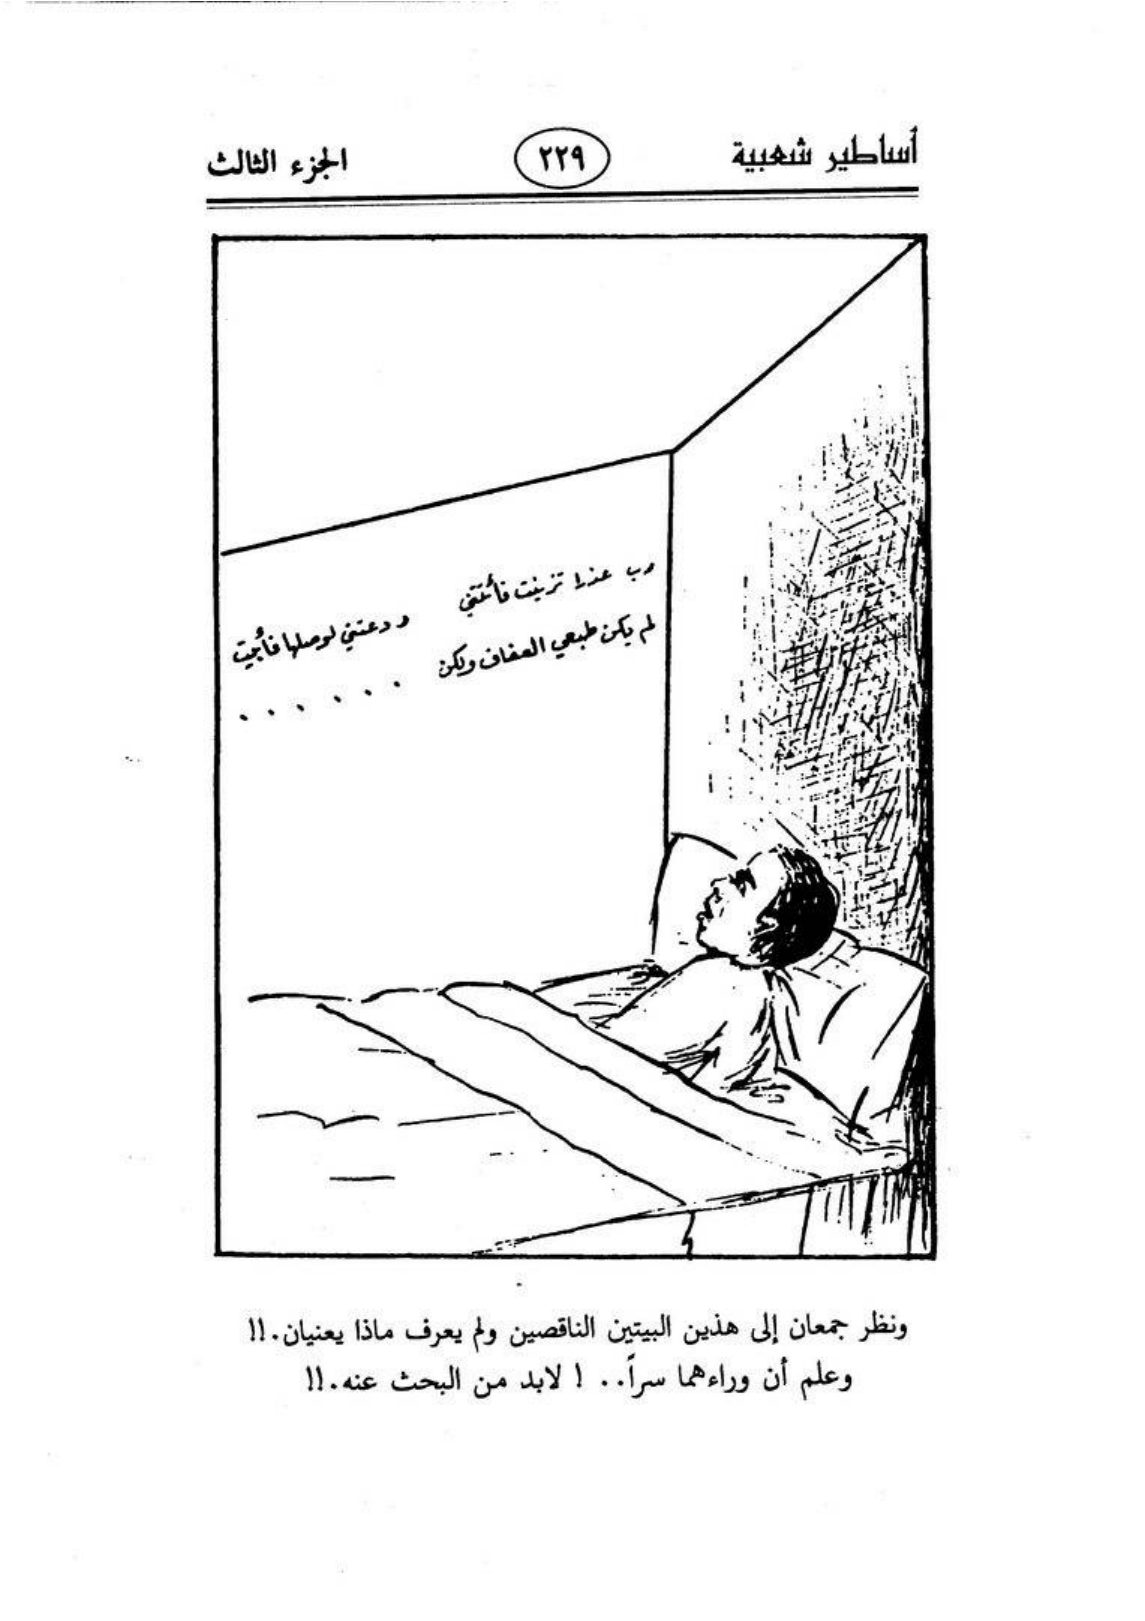 أساطير شعبية ٢٢٩ الجزء الثالث
رب عذرا تزينت فأتتني ودعتني لوصلها فأبيت
لم يكن طبعي العفاف ولكن . . . . . .
ونظر جمعان إلى هذين البيتين الناقصين ولم يعرف ماذا يعنيان.!!
وعلم أن وراءهما سراً.. ! لابد من البحث عنه.!!